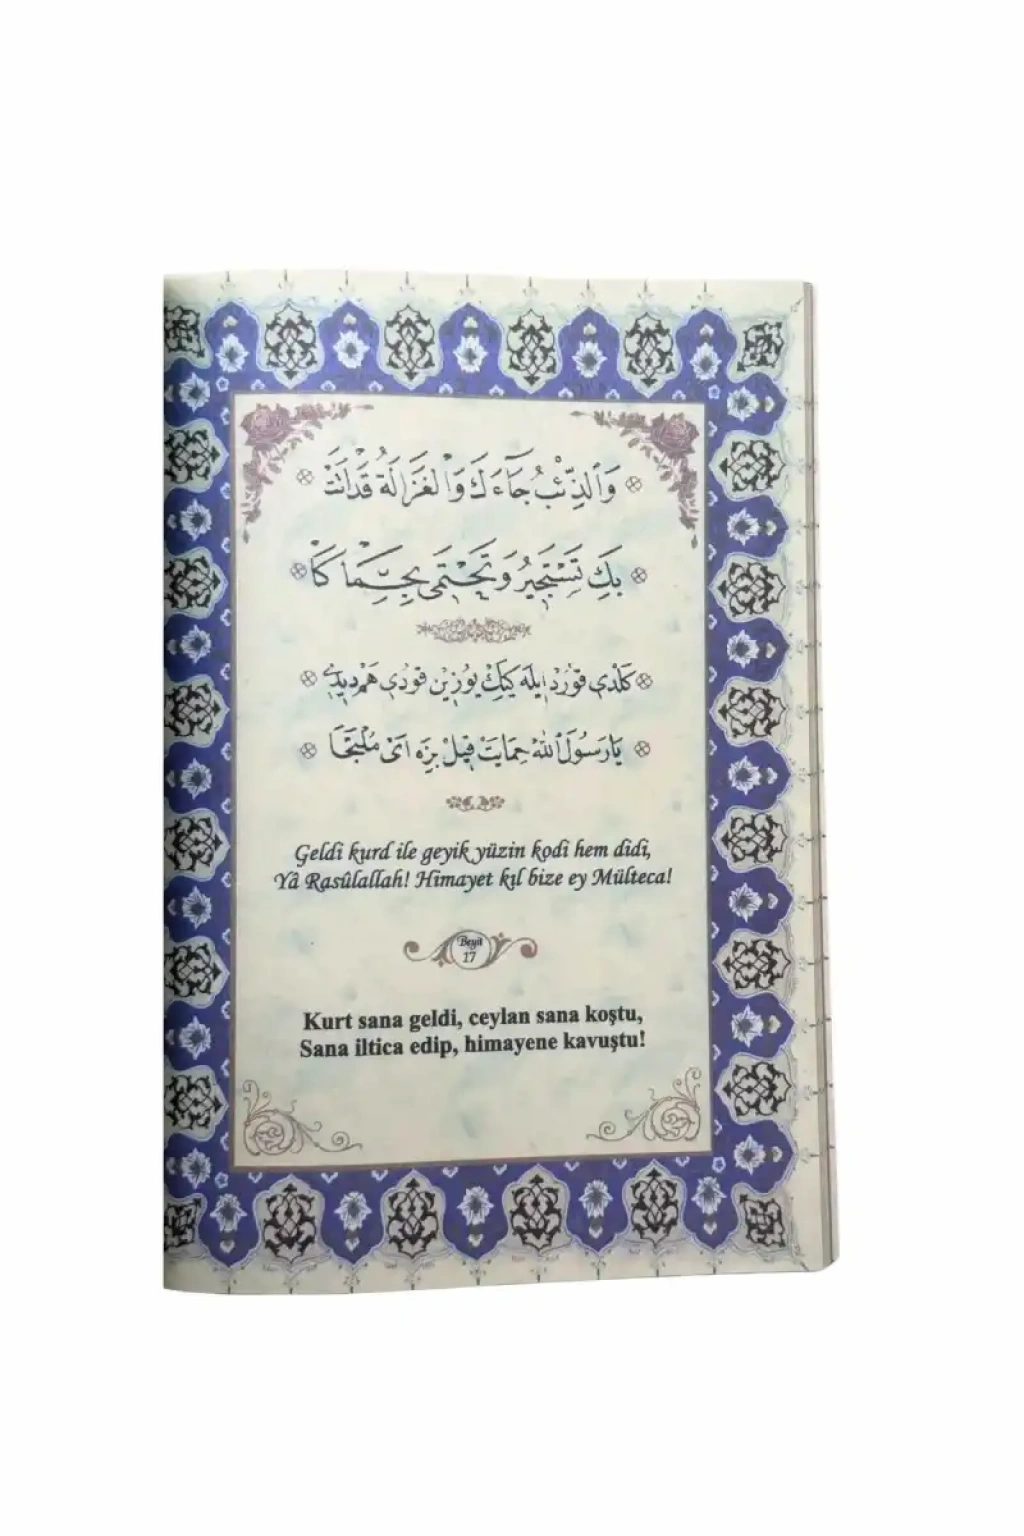 وَالذِّئْبُ جَآءَكَ وَالْغَزَالَةُ قَدْ اَتَتْ
بِكَ تَسْتَجِيرُ وَتَحْتَمِى بِحِمَاكَا
كَلْدِى قُورْد اِيلَه كَيِكْ يُوزِينْ قُودِى هَمْ دِيدِى
يَا رَسُولَ اللّٰهْ حِمَايَتْ قِيلْ بِزَه اَىْ مُلْتَجَا
Geldi kurd ile geyik yüzin kodi hem didi,
Yâ Rasûlallah! Himayet kıl bize ey Mülteca!
Beyit
17
Kurt sana geldi, ceylan sana koştu,
Sana iltica edip, himayene kavuştu!